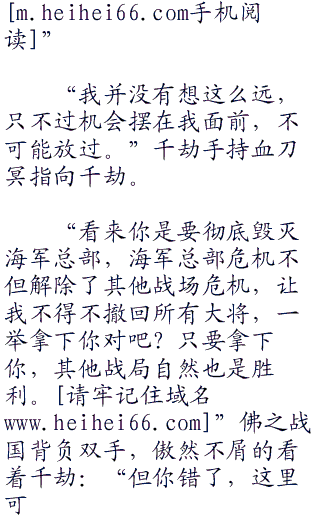 [m.heihei66.com手机阅
读]”
“我并没有想这么远，
只不过机会摆在我面前，不
可能放过。”千劫手持血刀
冥指向千劫。
“看来你是要彻底毁灭
海军总部，海军总部危机不
但解除了其他战场危机，让
我不得不撤回所有大将，一
举拿下你对吧？只要拿下
你，其他战局自然也是胜
利。[请牢记住域名
www.heihei66.com]”佛之战
国背负双手，傲然不屑的看
着千劫：“但你错了，这里
可